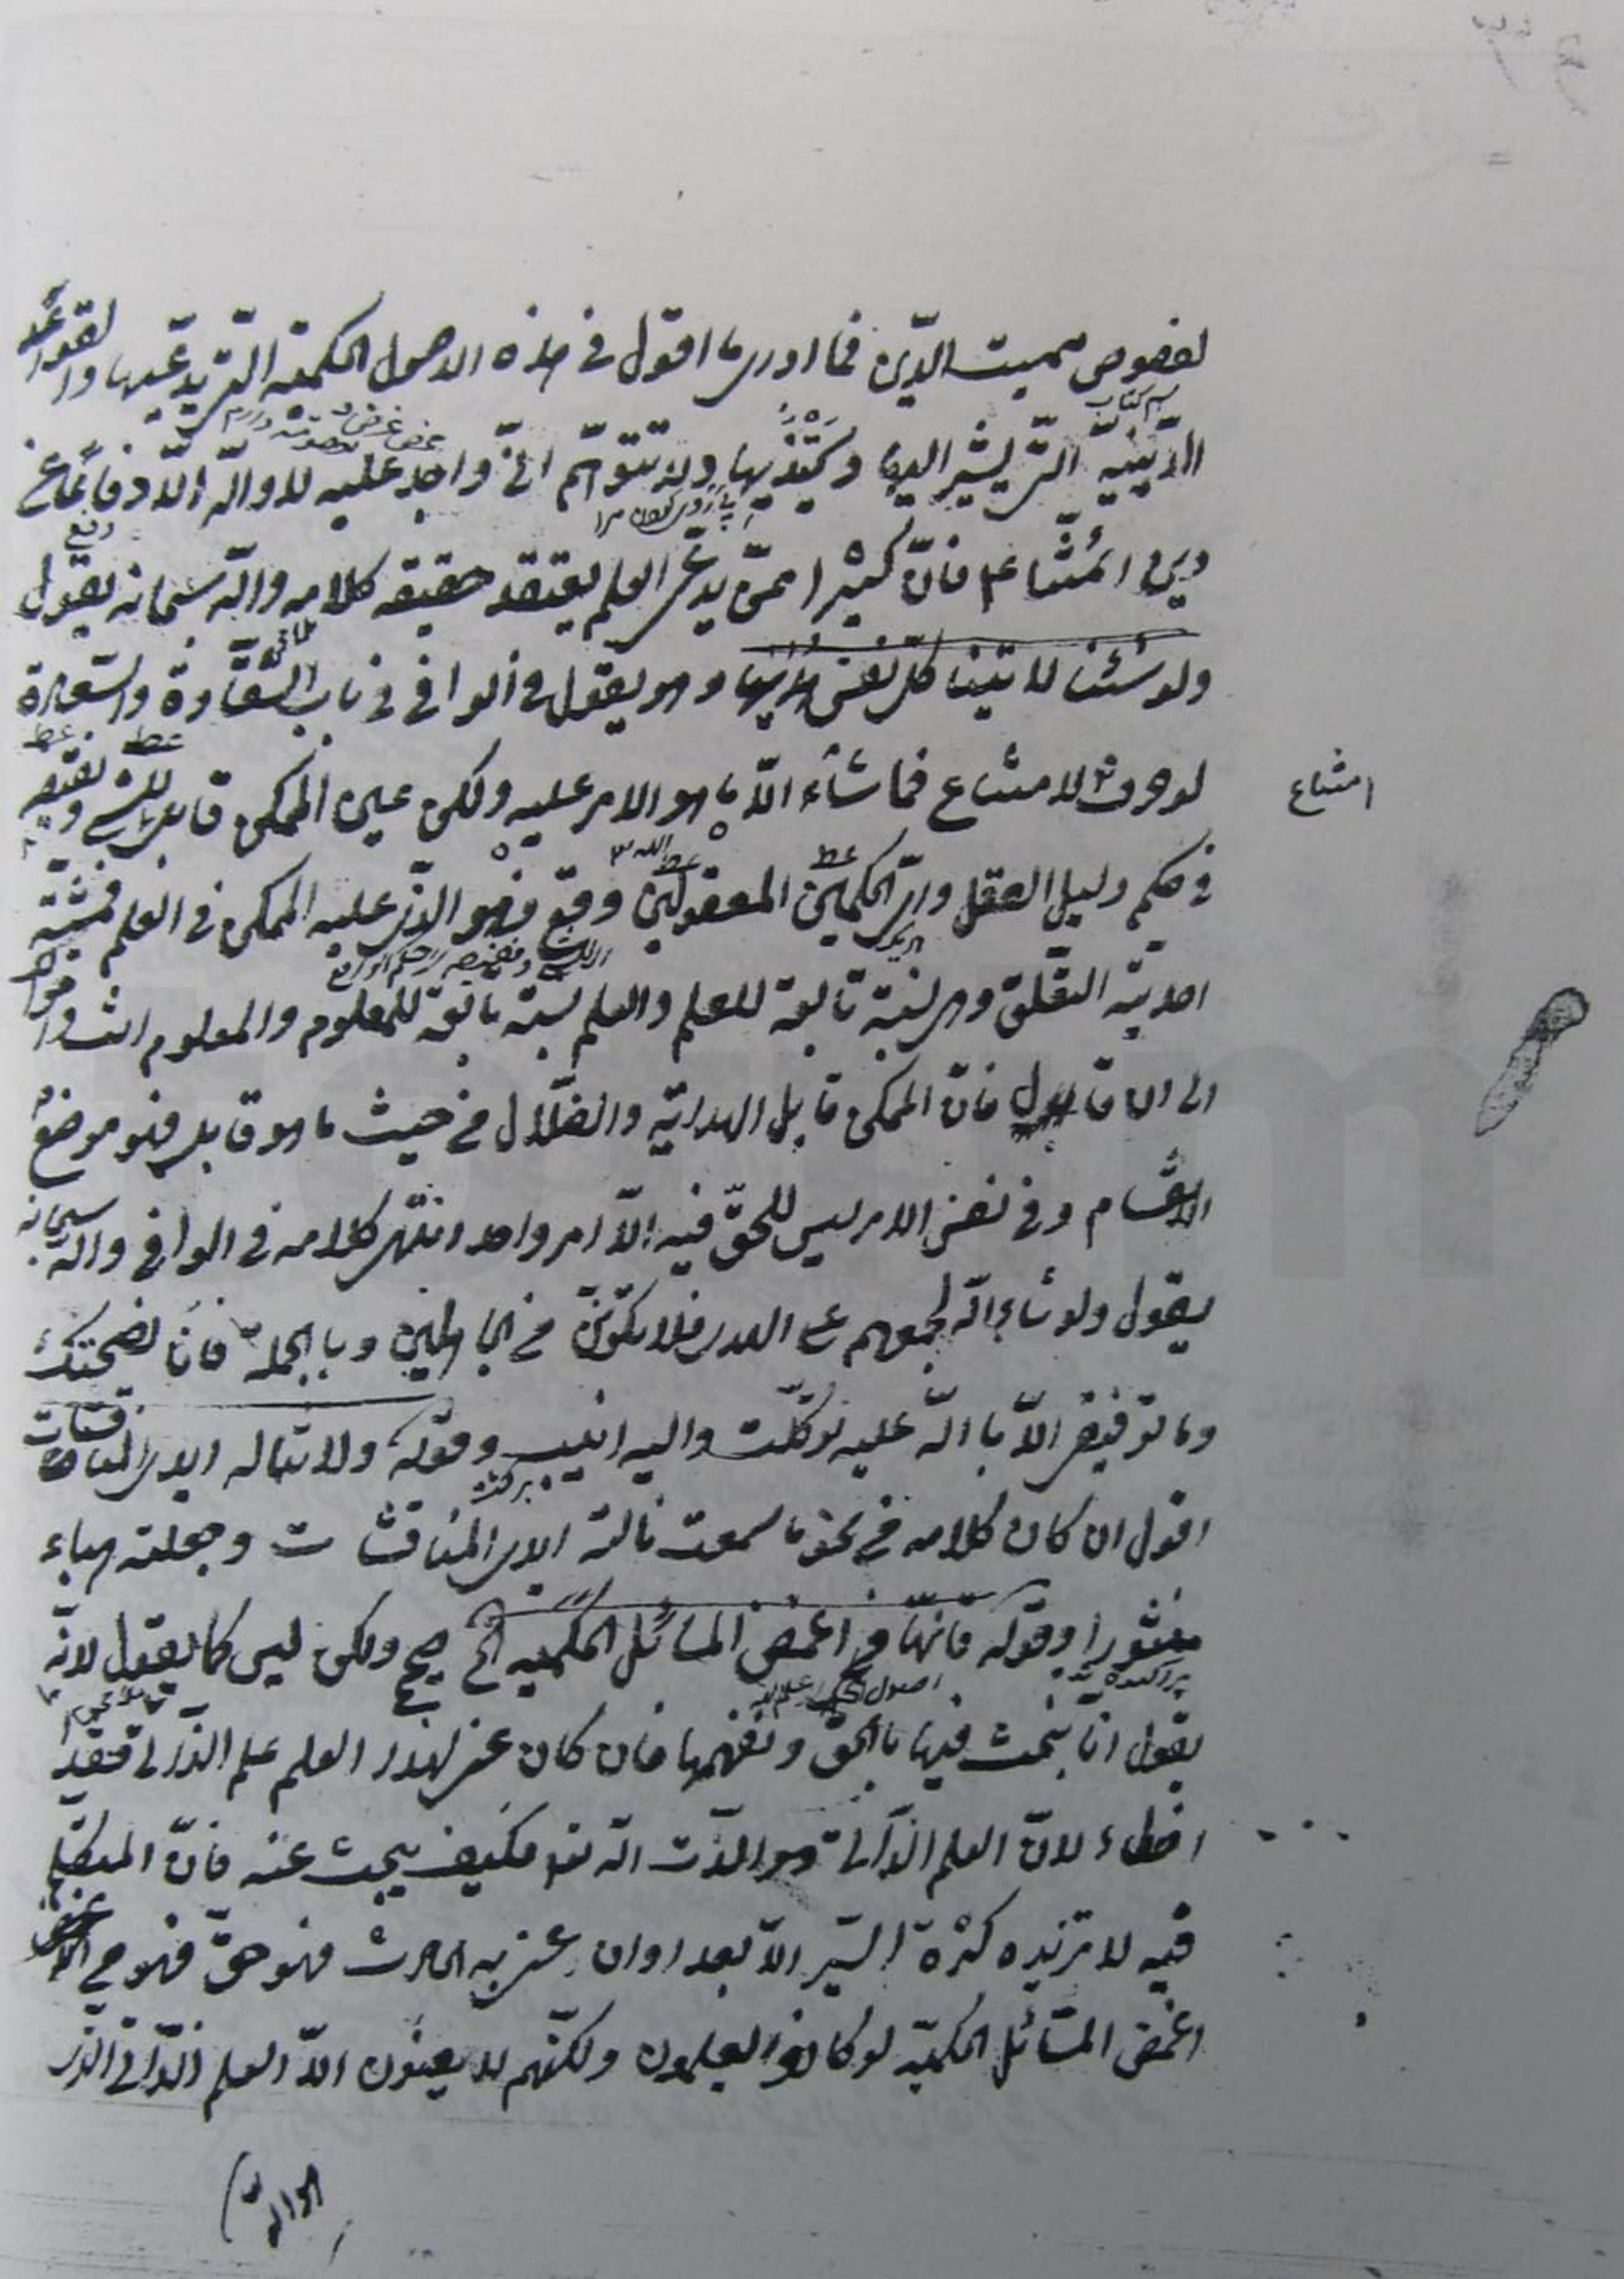 لفصوص مميت الدّين فما ادرى ما اقول فى هذه الاصول الحكمية التى يدّعيها والقواعد
الدّينيّة التى يشير اليها ولا تتوهّم انّى واجد عليه لا والله الّا دفاعا عن
دين ائمّتنا ع فانّ كثيرا ممّن يدّعى العلم يعتقد حقيقة كلامه والله سبحانه يقول
ولو شئنا لاتينا كلّ نفس هديها وهو يقول فى الوافى فى باب السّعادة والشّقاوة
لو حرف لامتناع فما شاء الله ما هو الامر عليه ولكن عين الممكن قابل للشىء ونقيضه
امتناع
فى حكم دليل العقل واىّ الحكمين المعقولين وقع فهو الذى عليه الممكن فى العلم فمشيّته
احديّة التعلّق وهى نسبة تابعة للعلم والعلم نسبة تابعة للمعلوم والمعلوم انت واحوالك
الى ان قال فانّ الممكن قابل الهداية والضّلال من حيث ما هو قابل فهو موضع
الانقسام وفى نفس الامر ليس للحقّ فيه الّا امر واحد انتهى كلامه فى الوافى والله سبحانه
يقول ولو شاء الله لجمعهم على الهدى فلا تكوننّ من الجاهلين وبالجملة فانا نصحتك
وما توفيقى الّا بالله عليه توكّلت واليه انيب وقوله ولا تناله ايدى المناقشات
اقول ان كان كلامه من نحو ما سمعت نالته ايدى المناقشات وجعلته هباء
منثورا وقوله فانّها من اغمض المسائل الحكمية الخ صحيح ولكن ليس كما يقول لانّه
يقول انّا نبحث فيها بالحق ونفهمها فان كان عنى بهذا العلم علم الذاتى فقد
اخطاء لانّ العلم الذاتى هو الذات الله تعالى فكيف يبحث عنه فانّ المتكلّم
فيه لا تزيده كثرة السّير الّا بعدا وان عنى به الحادث فهو حقّ فهو من
اغمض المسائل الحكميّة لو كانوا يعلمون ولكنّهم لا يعنون الّا العلم الذّاتى الذى